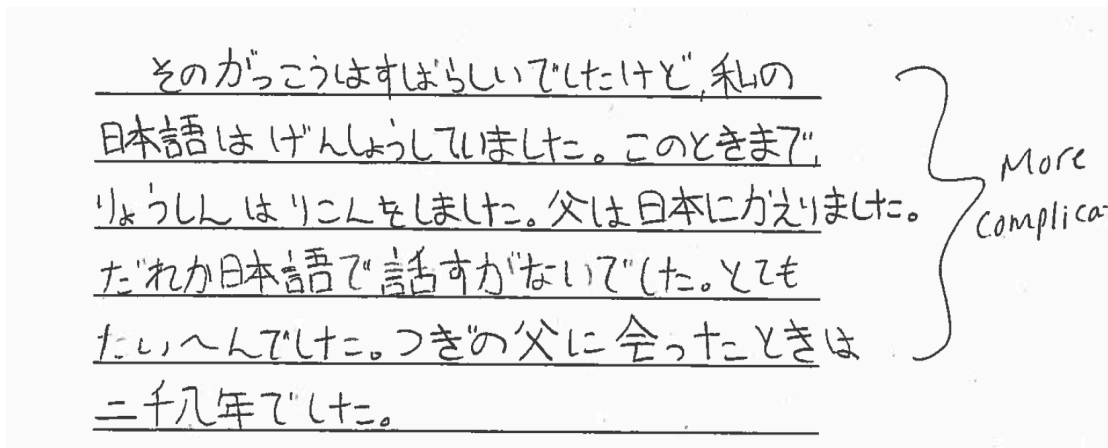 そのがっこうはすばらしいでしたけど,私の
日本語はげんしょうしていました。このときまで,
りょうしんはりこんをしました。父は日本にかえりました。
だれか日本語で話すがないでした。とても
たいへんでした。つぎの父に会ったときは
二千八年でした。
More
Complica-